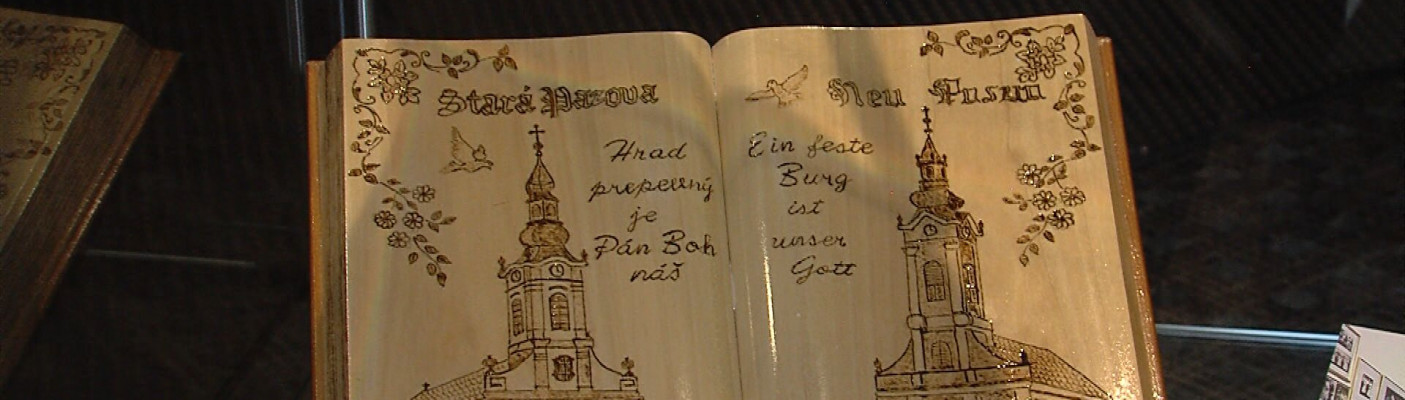 Stará Pazova
Hrad
prepevný
je
Pán Boh
náš
Neu Pasua
Ein feste
Burg
ist
unser
Gott